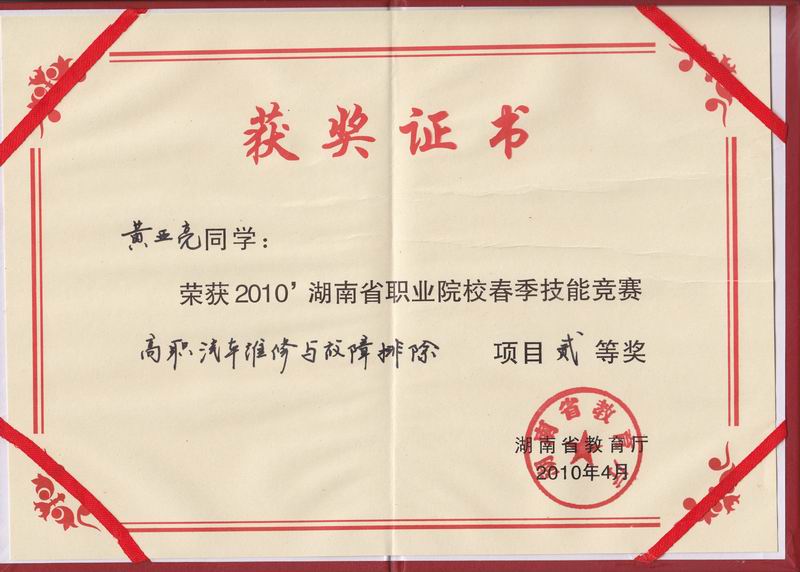 获奖证书
黄亚亮同学：
荣获2010’湖南省职业院校春季技能竞赛
高职汽车维修与故障排除 项目贰等奖
湖南省教育厅
2010年4月
湖南省教育厅